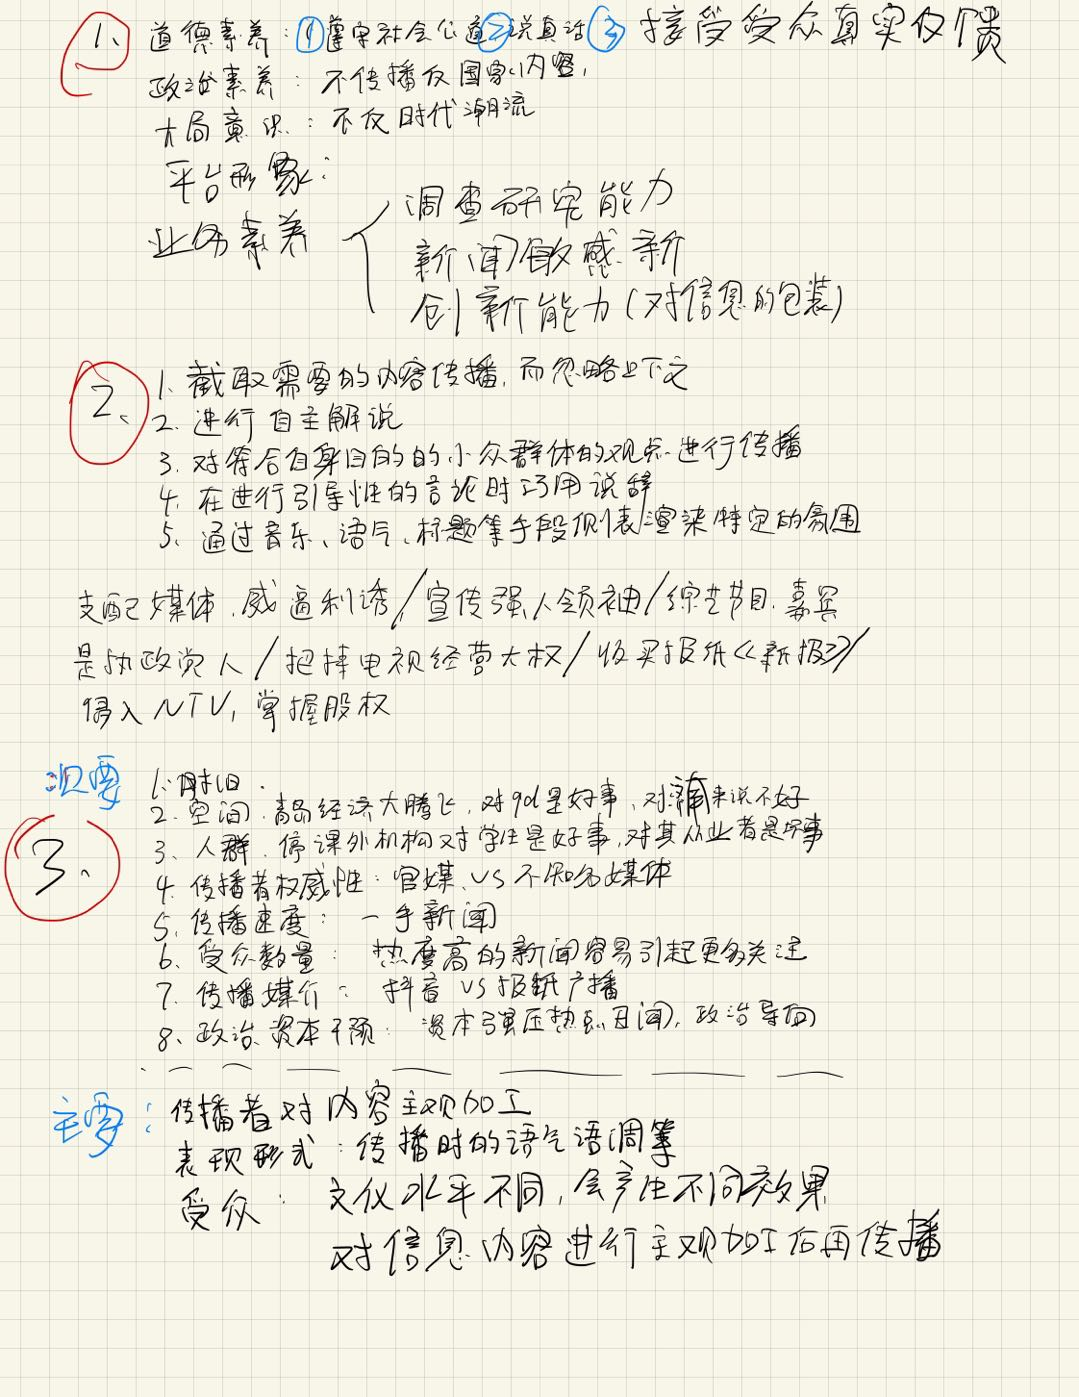 1、道德素养：①遵守社会公道②说真话③接受受众真实反馈
政治素养：不传播反国家内容，
大局意识：不反时代潮流
平台形象：
业务素养
调查研究能力
新闻敏感 新
创新能力（对信息的包装）
2、
1、截取需要的内容传播，而忽略上下文
2、进行自主解说
3、对符合自身目的的小众群体的观点进行传播
4、在进行引导性的言论时巧用说辞
5、通过音乐、语气、标题等手段侧表渲染特定的氛围
支配媒体，威逼利诱/宣传强人领袖/综艺节目，嘉宾
是执政党人/把持电视经营大权/收买报纸《新报》/
侵入NTV，掌握股权
次要
3、
1、时
2、空间，青岛经济大腾飞，对qd是好事，对 来说不好
3、人群，停课外机构对学生是好事，对其从业者是坏事
4、传播者权威性：官媒、VS不知名媒体
5、传播速度：一手新闻
6、受众数量：热度高的新闻容易引起更多关注
7、传播媒介：抖音VS报纸广播
8、政治、资本干预：资本强压热点丑闻，政治导向
主要：传播者对内容主观加工
表现形式：传播时的语气语调等
受众：文化水平不同，会产生不同效果
对信息内容进行主观加工后再传播